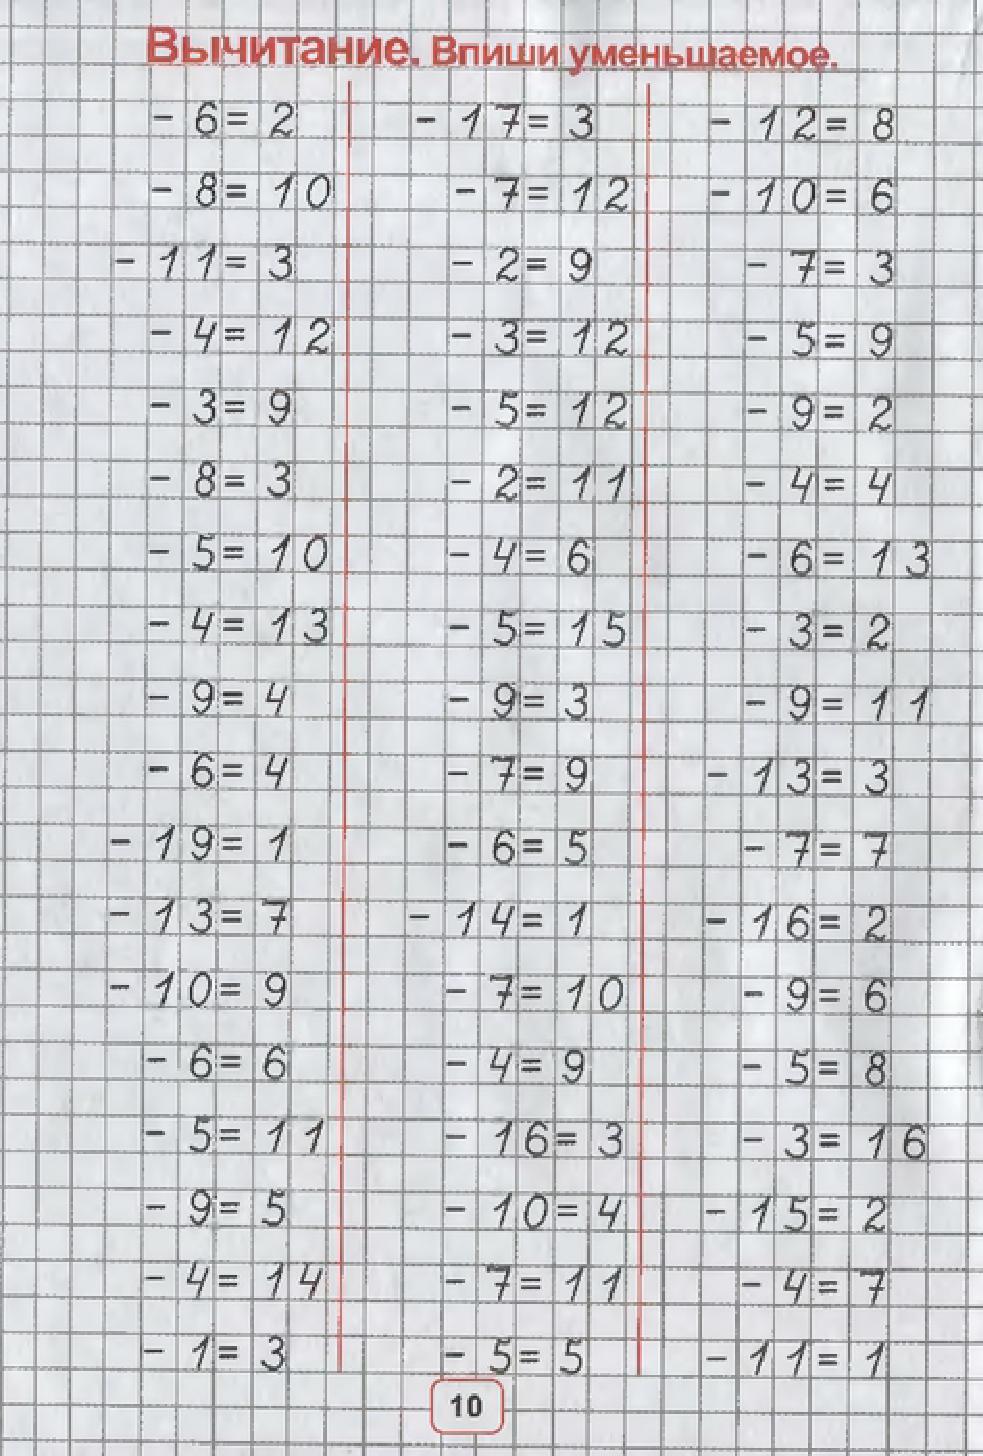 Вычитание. Впиши уменьшаемое.
- 6 = 2
- 8 = 10
- 11 = 3
- 4 = 12
- 3 = 9
- 8 = 3
- 5 = 10
- 4 = 13
- 9 = 4
- 6 = 4
- 19 = 1
- 13 = 7
- 10 = 9
- 6 = 6
- 5 = 11
- 9 = 5
- 4 = 14
- 1 = 3
- 17 = 3
- 7 = 12
- 2 = 9
- 3 = 12
- 5 = 12
- 2 = 11
- 4 = 6
- 5 = 15
- 9 = 3
- 7 = 9
- 6 = 5
- 14 = 1
- 7 = 10
- 4 = 9
- 16 = 3
- 10 = 4
- 7 = 11
- 5 = 5
- 12 = 8
- 10 = 6
- 7 = 3
- 5 = 9
- 9 = 2
- 4 = 4
- 6 = 13
- 3 = 2
- 9 = 11
- 13 = 3
- 7 = 7
- 16 = 2
- 9 = 6
- 5 = 8
- 3 = 16
- 15 = 2
- 4 = 7
- 11 = 1
10